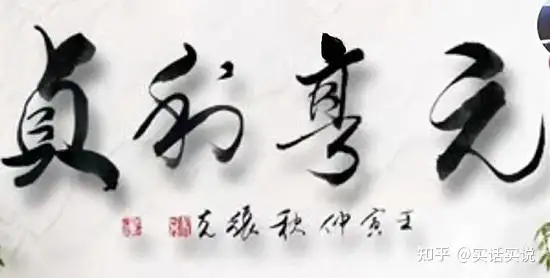 元亨利貞
壬寅仲秋張克
知乎 @实话实说